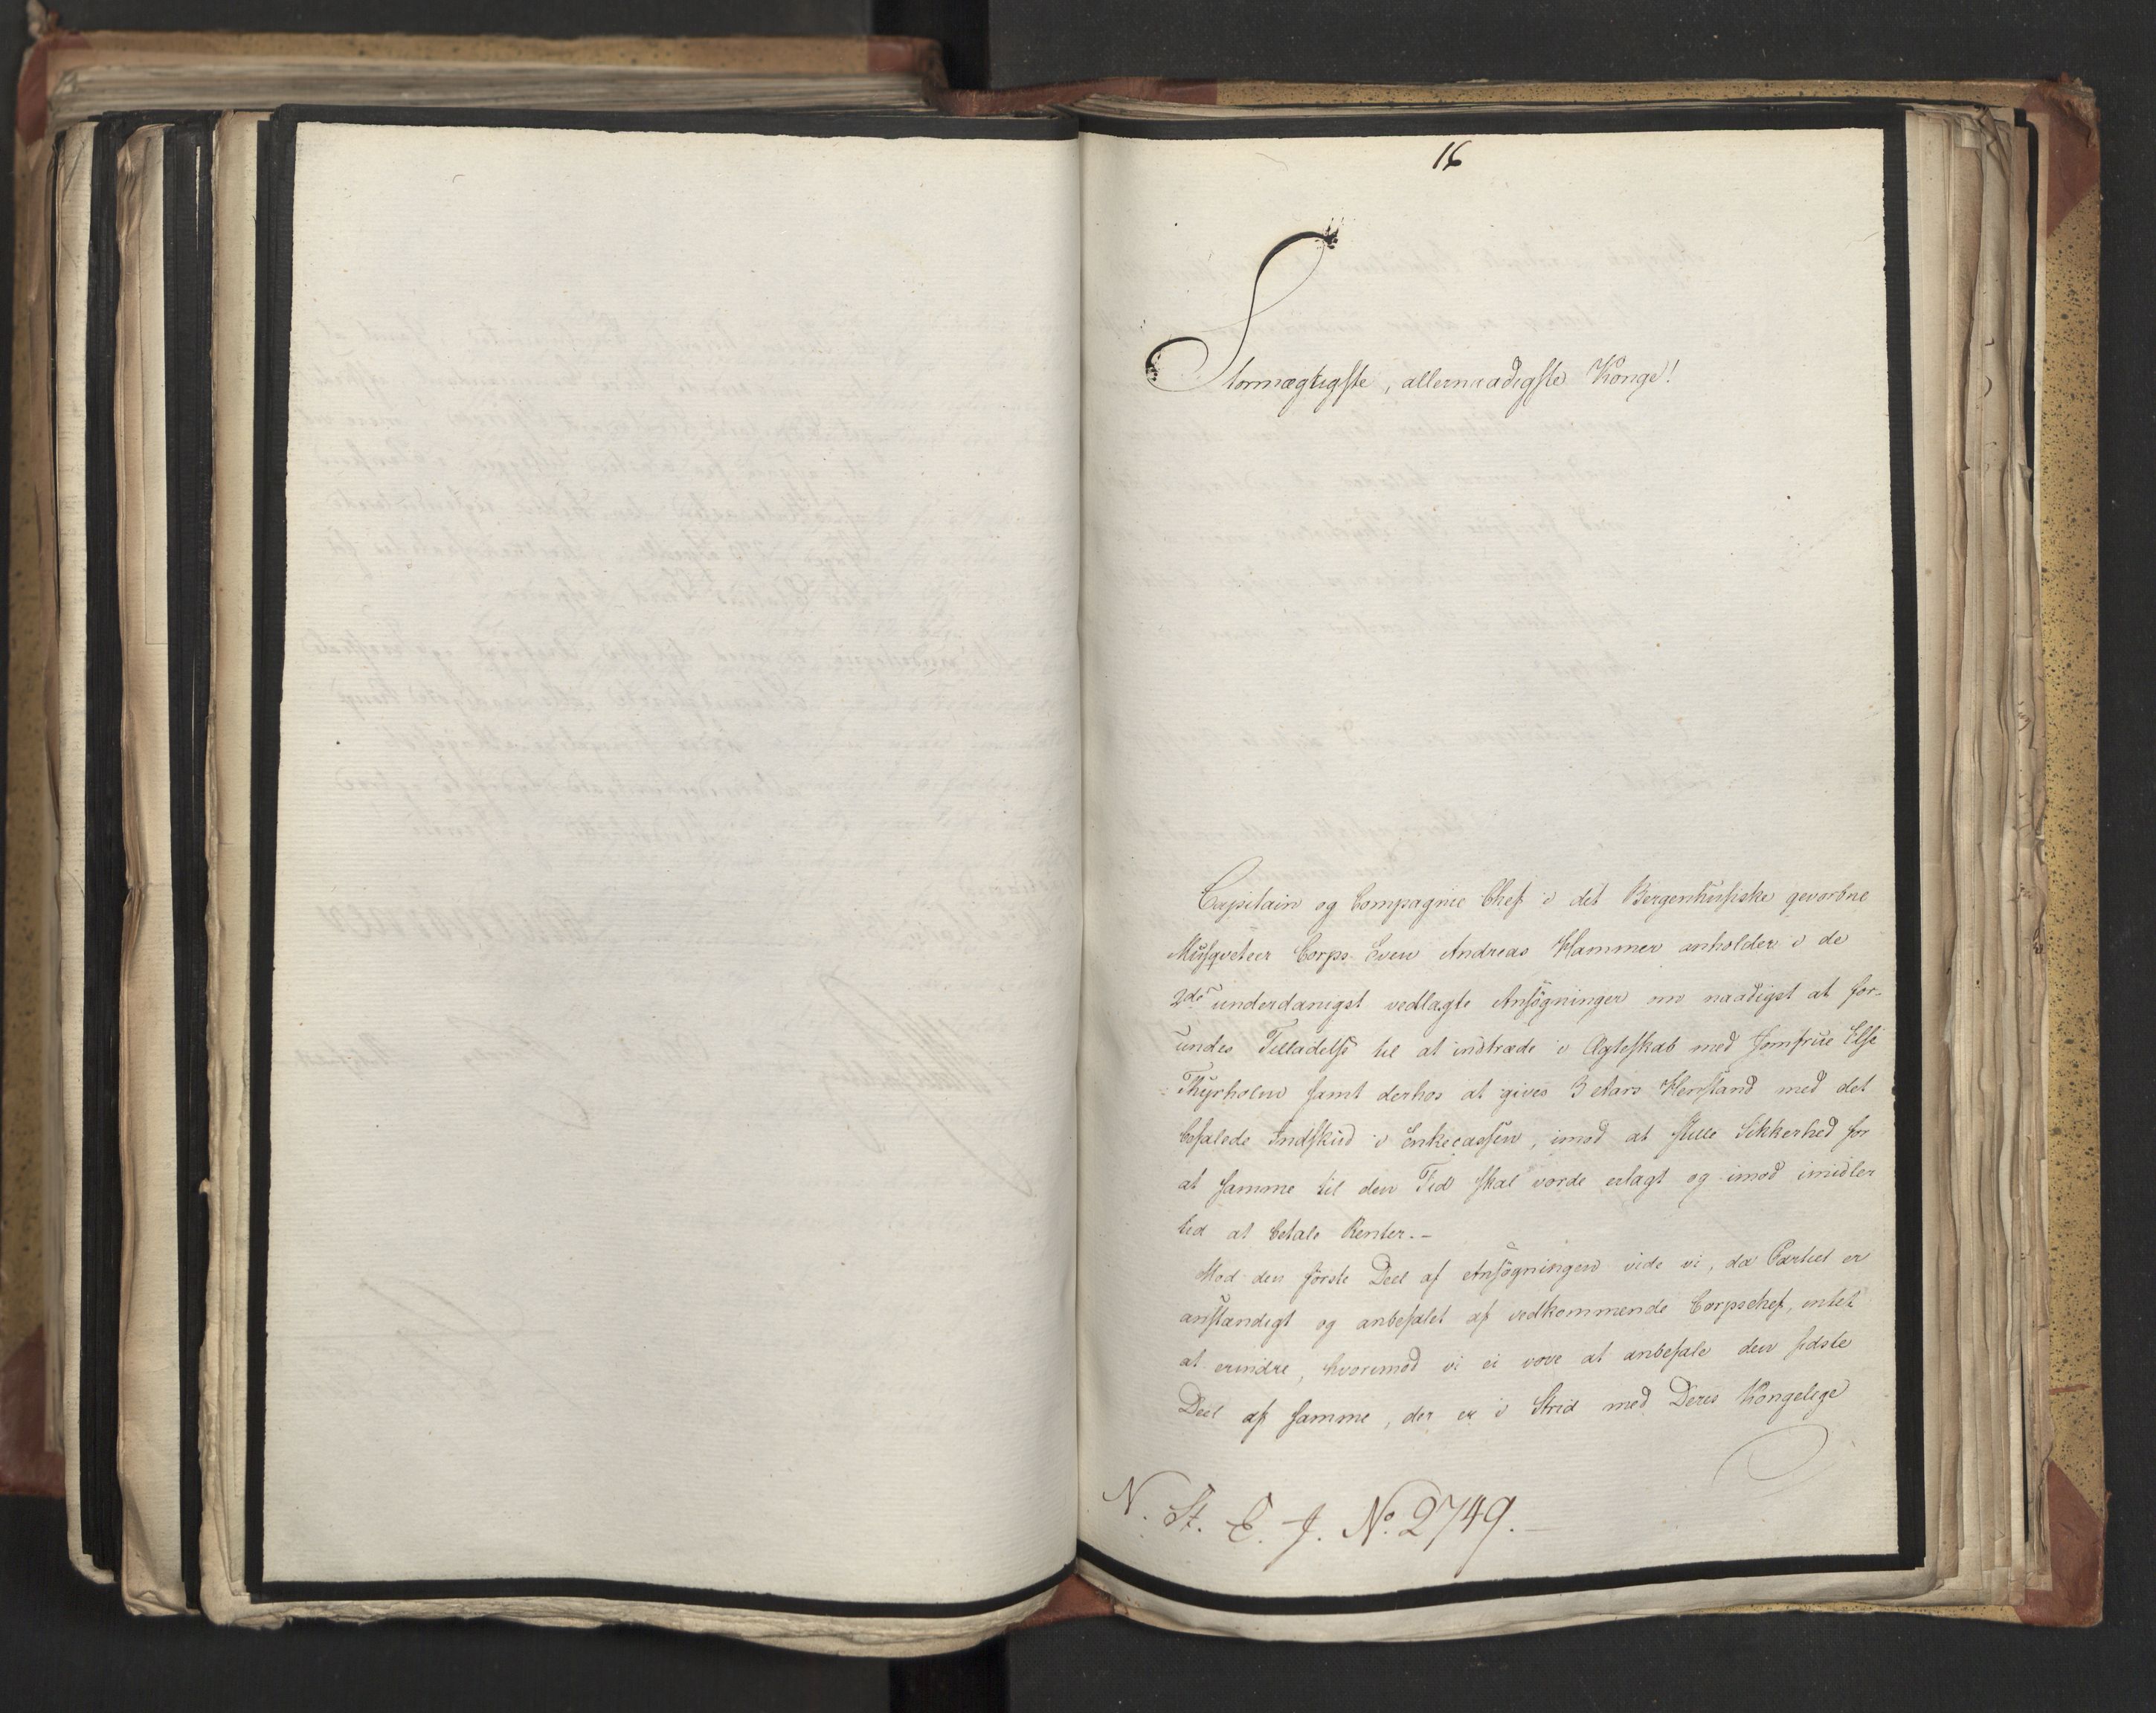 16
Stormægtigste, allernaadigste Konge!
Capitain og Compagnie Chef i det Bergenhusiske gevorbne
Musqveteer Corps Even Andreas Hammer anholder i de
2de underdanigst vedlagte Ansøgninger om naadigst at for-
undes Tilladelse til at indtræde i Ægteskab med Jomfrue Else
Thyrholm samt derhos at gives 3 Aars Henstand med det
befalede Indskud i Enkecassen, imod at stille Sikkerhed for
at samme til den Tid skal vorde erlagt og imod imidler
tid at betale Renter.-
Mod den første Deel af Ansøgningen vide vi, da Partiet er
anstændigt og anbefalet af vedkommende Corpschef, intet
at erindre, hvorimod vi ei vove at anbefale den sidste
Deel af samme, der er i Strid med Deres Kongelige
N. St. E. J. No. 2749.-